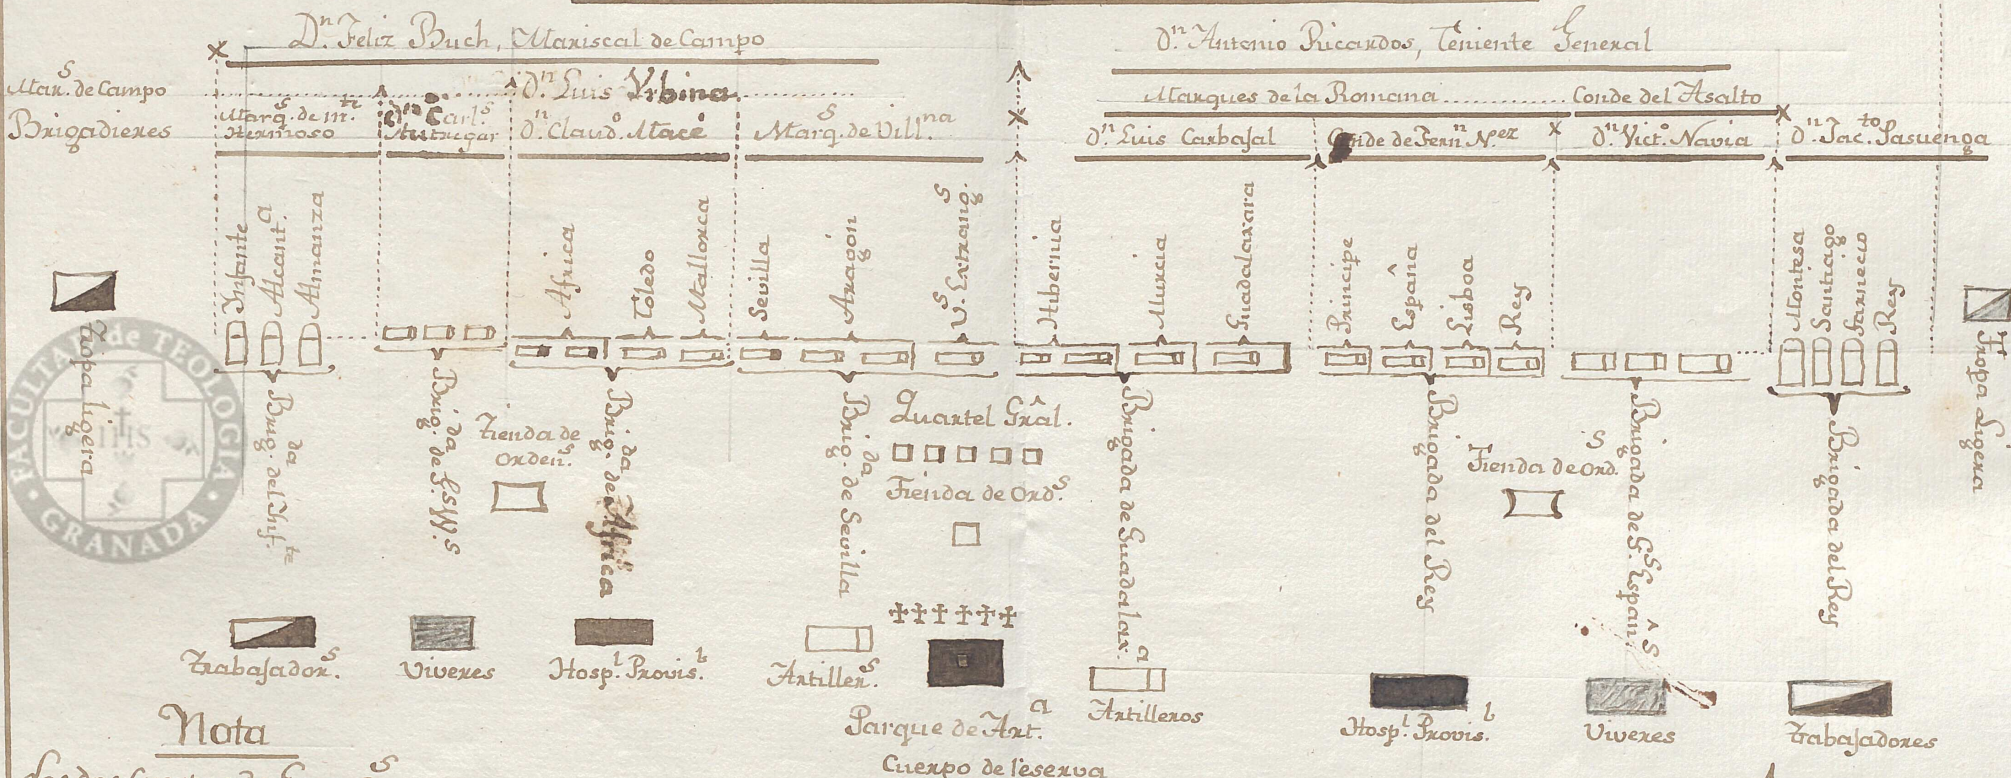 Dn. Feliz Buch, Mariscal de Campo
Dn. Antonio Ricardos, Teniente General
Mars. de Campo
Dn. Luis Vrbina
Marques de la Romana
Conde del Asalto
Brigadieres
Marqs. de
Hermoso
Dn. Carls.
Dn. Claudo. Macé
Marqs. de Villna
Dn. Luis Carbajal
Conde de Fernn. Nez
Dn. Victo. Navia
Dn. Jacto. Pasuenga
Infante
Alcanta.
Almanza
Africa
Toledo
Mallorca
Sevilla
Aragon
Vs. Extrangs.
Hibernia
Murcia
Guadalaxara
Principe
España
Lisboa
Rey
Montesa
Santiago
Farnecio
Rey
Tropa ligera
Brigda. del Infte.
Brigda. de Gs. Ws.
Tienda de
Ordens.
Brigda. de Africa
Brigda. de Sevilla
Quartel Grâl.
Tienda de Ords.
Brigada de Guadalaxa.
Brigada del Rey
Tienda de Ords.
Brigada de Gs. Españs.
Brigada del Rey
Tropa Ligera
Trabajadors.
Viveres
Hospl. Provisl.
Artillers.
Parque de Arta.
Artilleros
Hospl. Provisl.
Viveres
Trabajadores
Nota
Cuerpo de reserva
FACULTAD de TEOLOGIA
IHS
GRANADA